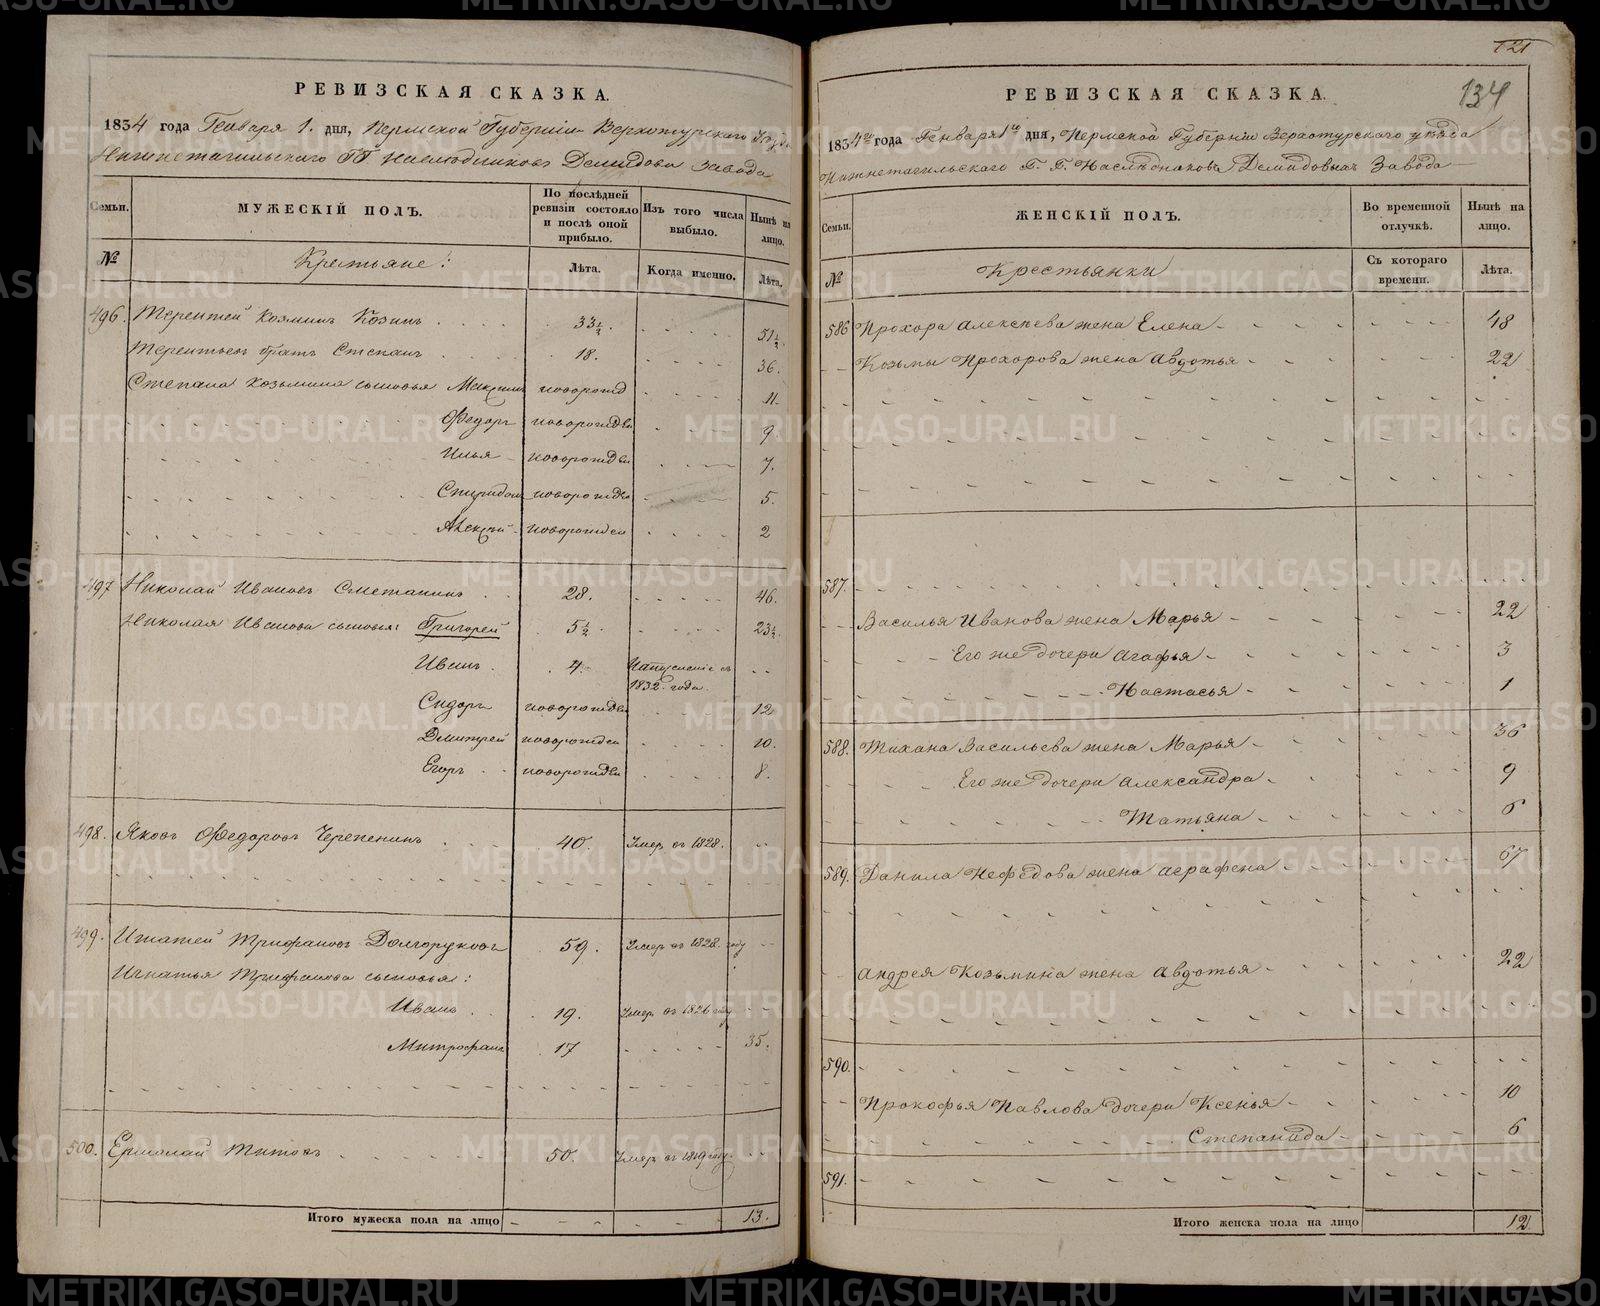 РЕВИЗСКАЯ СКАЗКА.
1834 года Генваря 1. дня, Пермской Губернии Верхотурского Уезда
Нижнетагильского ГГ Наследников Демидова завода
Семьи.
МУЖЕСКІЙ ПОЛЪ.
По послѣдней ревизіи состояло и послѣ оной прибыло.
Изъ того числа выбыло.
Нынѣ на лицо.
№
Крестьяне:
Лѣта.
Когда именно.
Лѣта.
496. Терентей Козмин Козин 33½. 51½.
Терентьев брат Степан 18. 36.
Степана Козьмина сыновья Максим новорожд 11.
Федоръ новорожден 9.
Илья новорожден 7.
Спиридон новорожден 5.
Алексей новорожден 2
497 Николай Иванов Сметанин 28. 46.
Николая Иванова сыновья: Григорей 5½ 23½.
Иван. 4. 
1832. года.
Сидоръ новорожден 12
Дмитрей новорожден 10.
Егоръ новорожден 8.
498. Яковъ Федоровъ Черепенинъ 40. Умер въ 1828.
499. Игнатей Трифановъ Долгоруковъ 59. Умер въ 1828. году
Игнатья Трифанова сыновья:
Иванъ 19. Умер въ 1826 году
Митрофанъ 17 35.
500. Ермолай Титовъ 50. Умеръ въ 1819 году.
Итого мужеска пола на лицо 13.
121
134
РЕВИЗСКАЯ СКАЗКА.
1834го года Генваря 1го дня, Пермской Губерніи Верхотурского уѣзда
Нижнетагильского Г. Г. Наслѣдниковъ Демидовыхъ Завода
Семьи.
ЖЕНСКІЙ ПОЛЪ.
Во временной отлучкѣ.
Нынѣ на лицо.
№
Крестьянки
Съ котораго времени.
Лѣта.
586 Прохора Алексѣева жена Елена 48
Козьмы Прохорова жена Авдотья 22
587.
Василья Иванова жена Марья 22
Его же дочери Агафья 3
Настасья 1
588. Тихана Васильева жена Марья 36
Его же дочери Александра 9
Татьяна 6
589. Данила Нефедова жена Аграфена 67
Андрея Козьмина жена Авдотья 22
590.
Прокофья Павлова дочери Ксенья 10
Степанида 6
591.
Итого женска пола на лицо 12.
METRIKI.GASO-URAL.RU